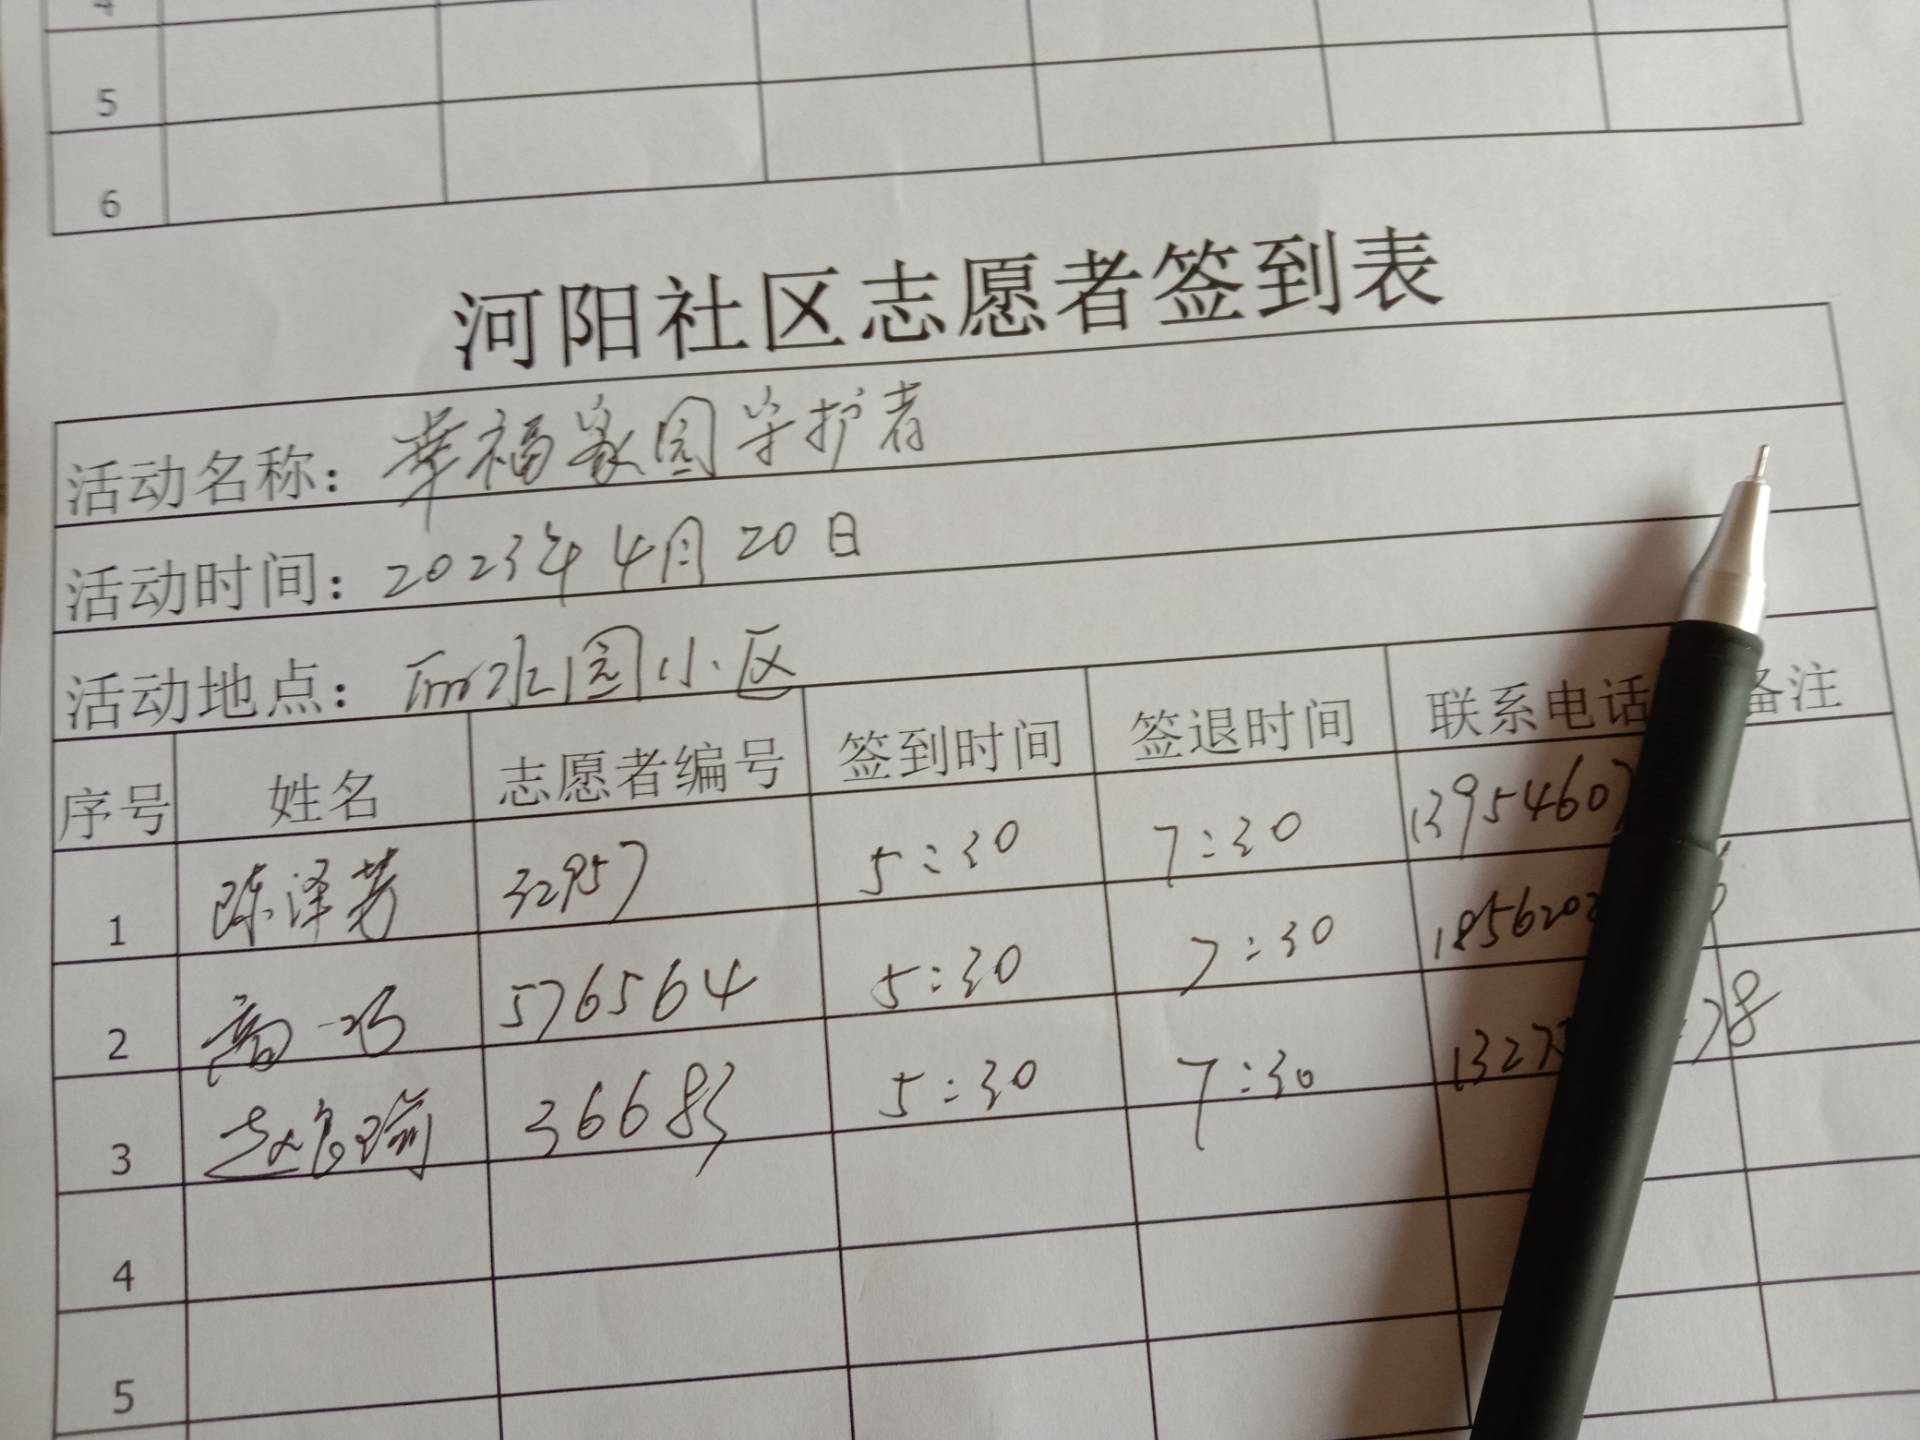 5
6
河阳社区志愿者签到表
活动名称：幸福家园守护者
活动时间：2023年4月20日
活动地点：丽水园小区
序号 姓名 志愿者编号 签到时间 签退时间 联系电话 备注
1 陈泽芳 32957 5:30 7:30 1395460
2 高一巧 576564 5:30 7:30 1856202
3 赵 瑞 36683 5:30 7:30 1327 78
4
5